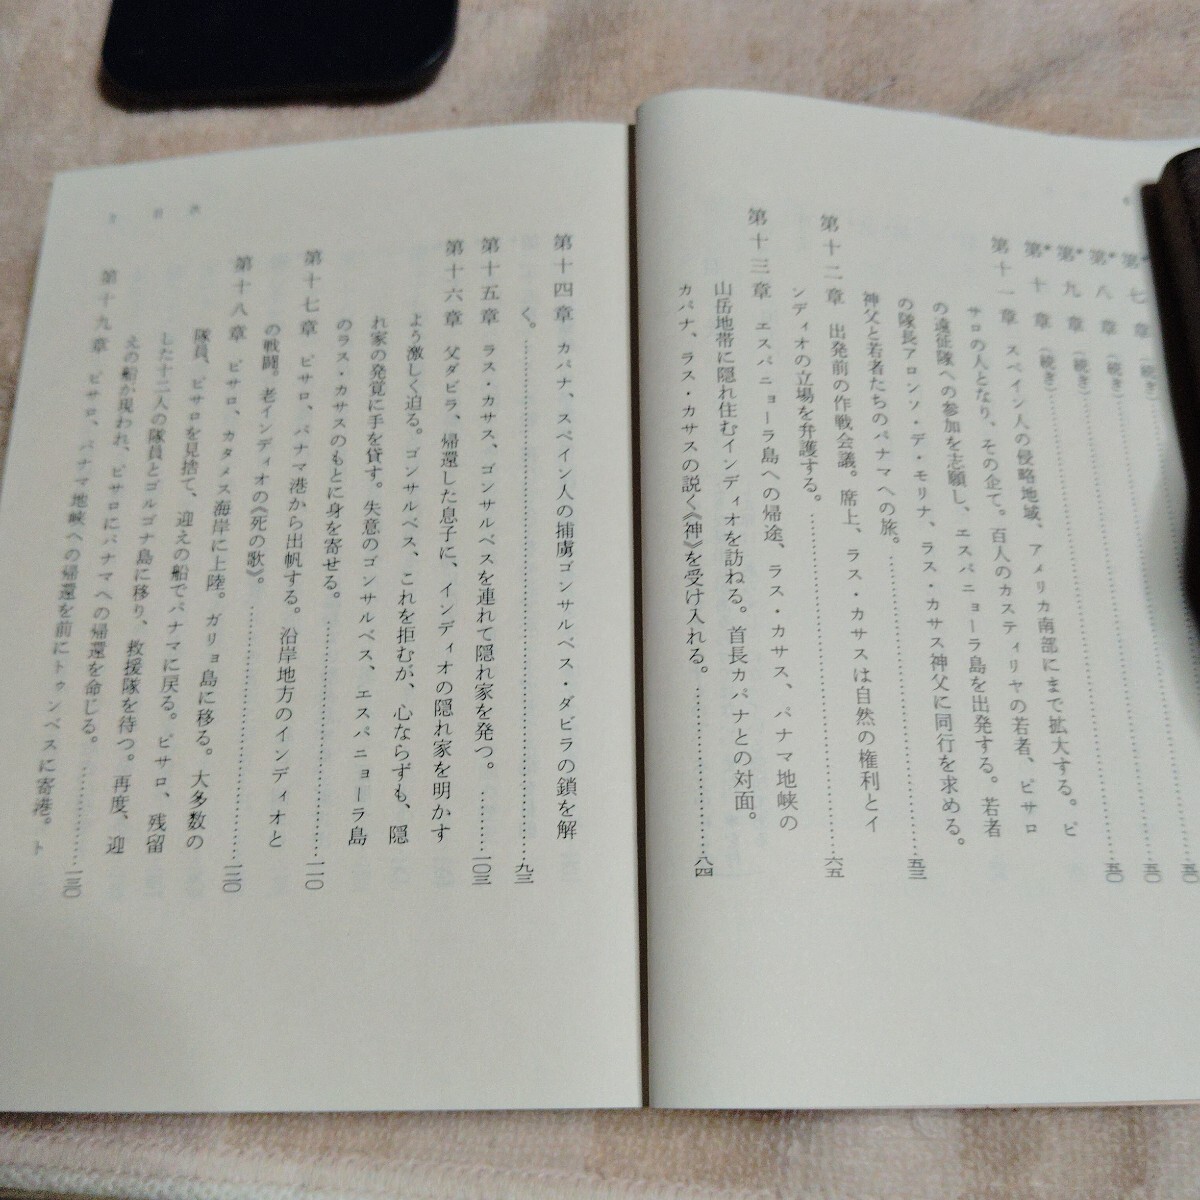 第七章（続き）……五〇
第八章（続き）……五〇
第九章（続き）……五〇
第十章（続き）
第十一章 スペイン人の侵略地域、アメリカ南部にまで拡大する。ピ
サロの人となり、その企て。百人のカスティリヤの若者、ピサロ
の遠征隊への参加を志願し、エスパニョーラ島を出発する。若者
の隊長アロンソ・デ・モリナ、ラス・カサス神父に同行を求める。
神父と若者たちのパナマへの旅。……五三
第十二章 出発前の作戦会議。席上、ラス・カサスは自然の権利とイ
ンディオの立場を弁護する。……六五
第十三章 エスパニョーラ島への帰途、ラス・カサス、パナマ地峡の
山岳地帯に隠れ住むインディオを訪ねる。首長カパナとの対面。
カパナ、ラス・カサスの説く《神》を受け入れる。……八四
目次
第十四章 カパナ、スペイン人の捕虜ゴンサルベス・ダビラの鎖を解
く。……九三
第十五章 ラス・カサス、ゴンサルベスを連れて隠れ家を発つ。……一〇三
第十六章 父ダビラ、帰還した息子に、インディオの隠れ家を明かす
よう激しく迫る。ゴンサルベス、これを拒むが、心ならずも、隠
れ家の発覚に手を貸す。失意のゴンサルベス、エスパニョーラ島
のラス・カサスのもとに身を寄せる。……一一〇
第十七章 ピサロ、パナマ港から出帆する。沿岸地方のインディオと
の戦闘。老インディオの《死の歌》。……一二〇
第十八章 ピサロ、カタメス海岸に上陸。ガリョ島に移る。大多数の
隊員、ピサロを見捨て、迎えの船でパナマに戻る。ピサロ、残留
した十二人の隊員とゴルゴナ島に移り、救援隊を待つ。再度、迎
えの船が現われ、ピサロにパナマへの帰還を命じる。……一三〇
第十九章 ピサロ、パナマ地峡への帰還を前にトゥンベスに寄港。ト